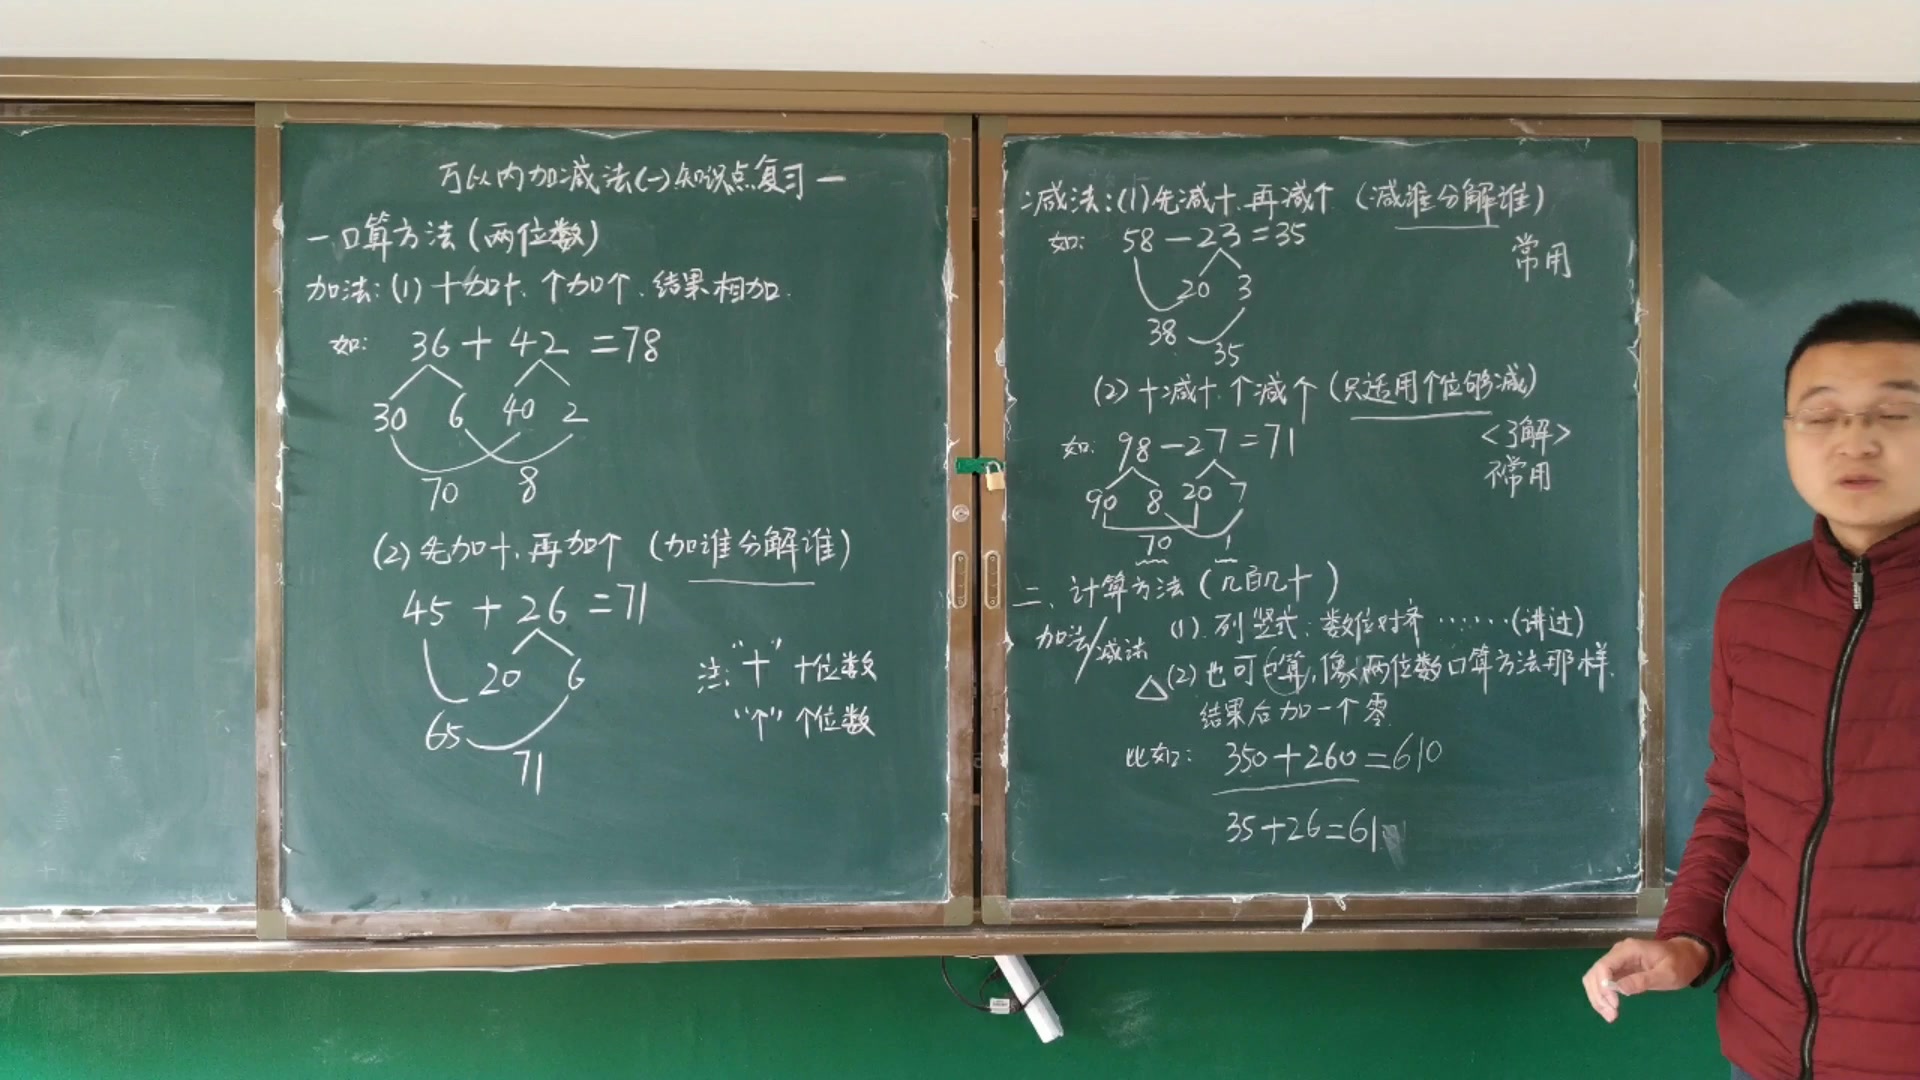 万以内加减法(一)知识点复习一
一口算方法(两位数)
加法:(1)十加十、个加个、结果相加.
如: 36+42=78
30 6 40 2
70 8
(2)先加十、再加个(加谁分解谁)
45+26=71
20 6
65
71
注:"十"十位数
"个"个位数
减法:(1)先减十、再减个(减谁分解谁)
常用
如: 58-23=35
20 3
38
35
(2)十减十、个减个(只适用个位够减)
<了解>
不常用
如: 98-27=71
90 8 20 7
70 1
二、计算方法(几百几十)
加法/减法
(1).列竖式:数位对齐……(讲过)
△(2)也可口算,像两位数口算方法那样.
结果后加一个零.
比如: 350+260=610
35+26=61